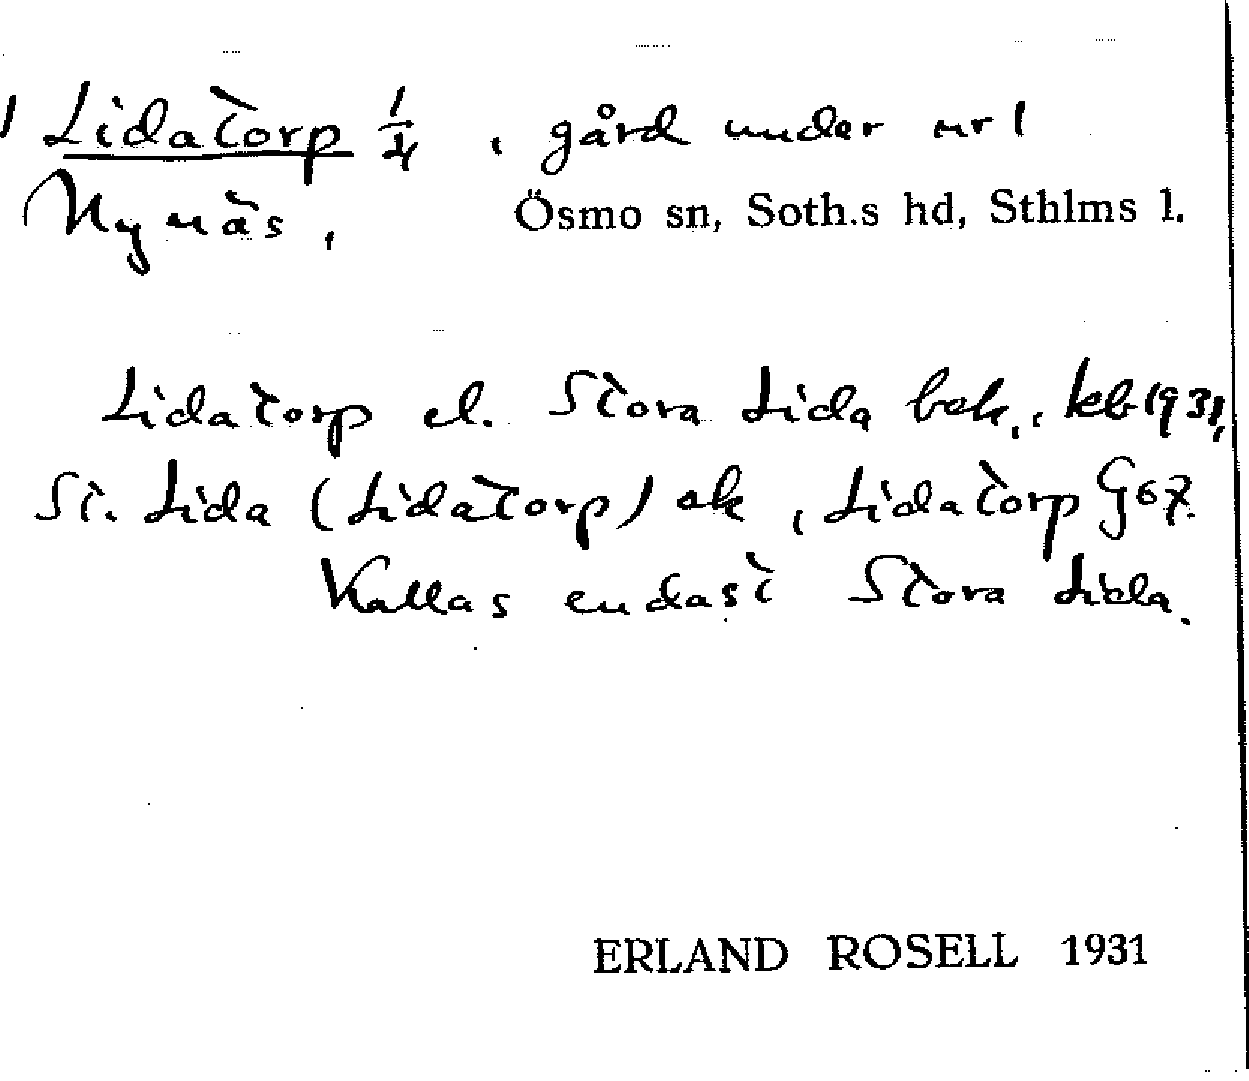 Lidatorp 1/4, gård under nr 1
Nynäs, Ösmo sn, Soth.s hd, Sthlms l.
Lidatorp el. Stora Lida bek., kb 1931,
St. Lida (Lidatorp) ek, Lidatorp G67.
Kallas endast Stora Lida.
ERLAND ROSELL 1931